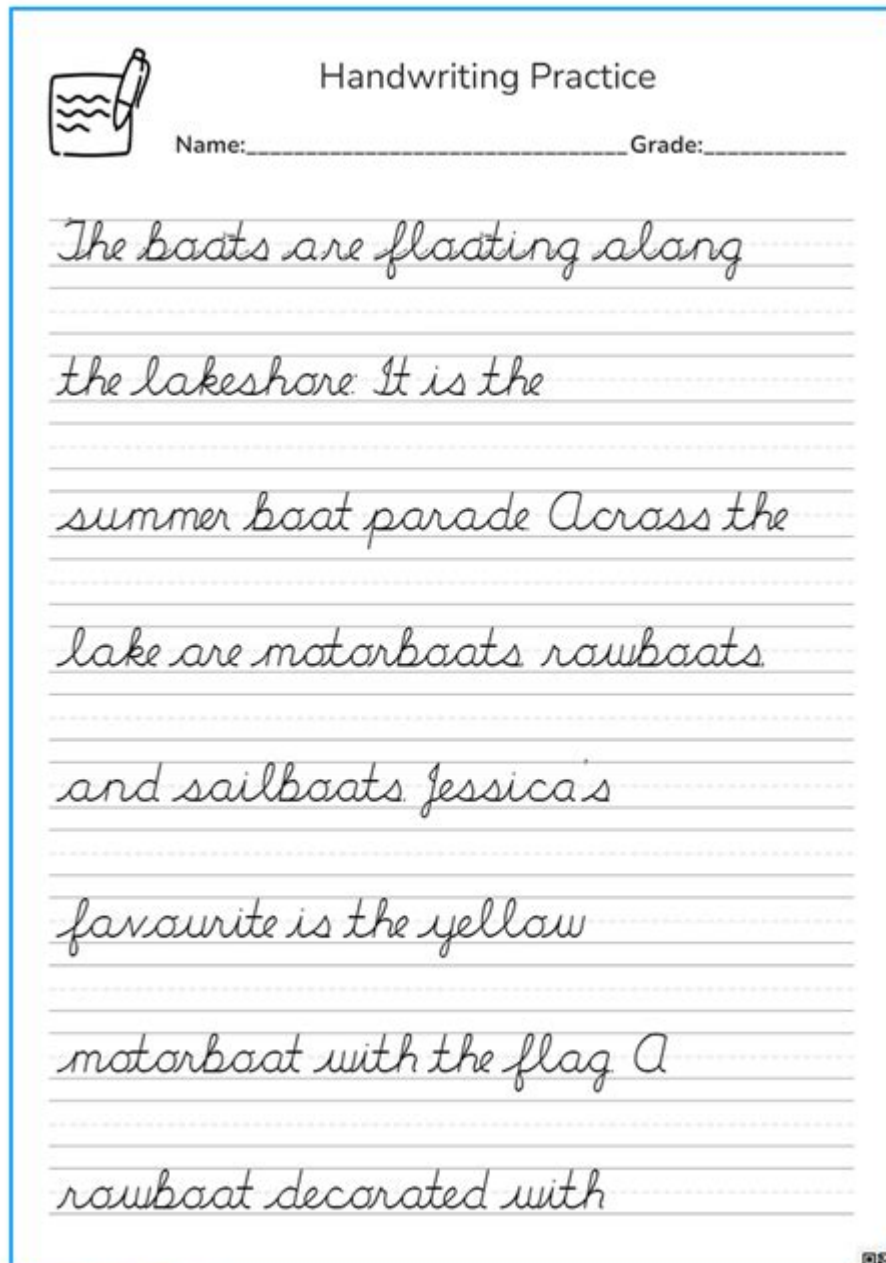 Handwriting Practice
Name:________________________________Grade:____________
The boats are floating along
the lakeshore. It is the
summer boat parade. Across the
lake are motorboats, rowboats,
and sailboats. Jessica's
favourite is the yellow
motorboat with the flag. A
rowboat decorated with